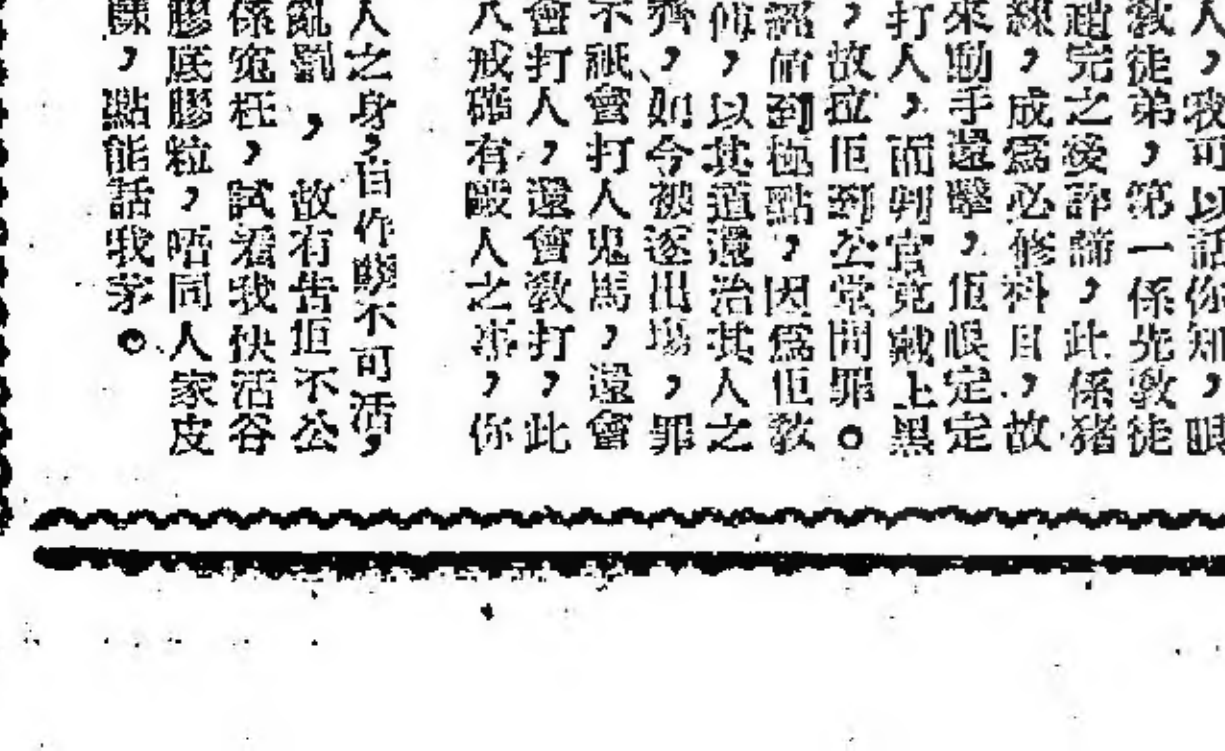 人，我可以話你知，眼
教徒弟，第一係先教徒
趙完之後詐諦，此係豬
練，成爲必修科目，故
來動手還擊，佢眼定定
打人，而判官竟戴上黑
，故拉佢到公堂問罪。
到極點，因爲佢教
，以其道還治其人之
齊，如今被逐出場，罪
不祇會打人鬼馬，還會
會打人，還會教打，此
八戒確有毆人之事，你
人之身，自作孽不可活，
亂劏，故有告佢不公
係寃枉，試着我快活谷
膠底膠粒，唔同人家皮
，點能話我茅。